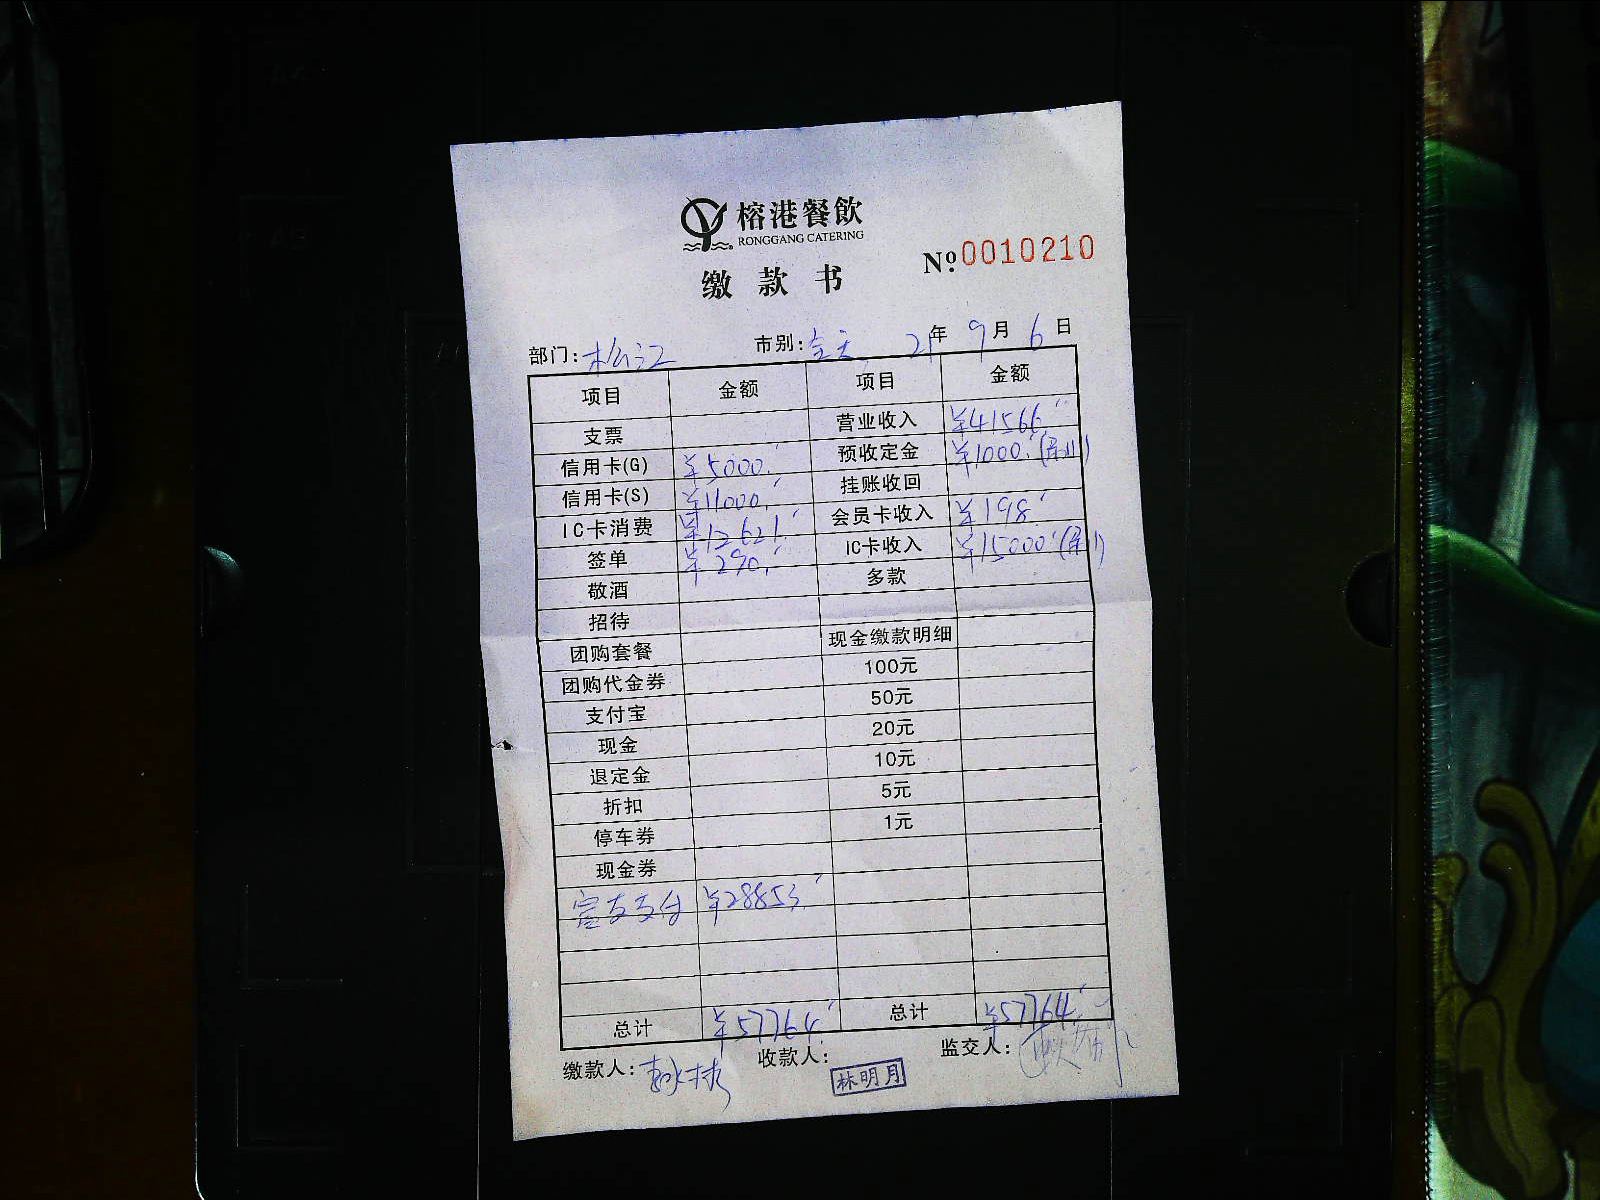 榕港餐飲
RONGGANG CATERING
缴款书
Nº.0010210
部门:松江 市别:全天 21年 9月 6日
项目 金额 项目 金额
支票 营业收入 ¥41566
信用卡(G) ¥5000 预收定金 ¥1000
信用卡(S) ¥11000 挂账收回
IC卡消费 ¥12621 会员卡收入 ¥198
签单 ¥290 IC卡收入 ¥15000
敬酒 多款
招待
团购套餐 现金缴款明细
团购代金券 100元
支付宝 50元
现金 20元
退定金 10元
折扣 5元
停车券 1元
现金券
富友支付 ¥28853
总计 ¥57764 总计 ¥57764
缴款人: 收款人:林明月 监交人: